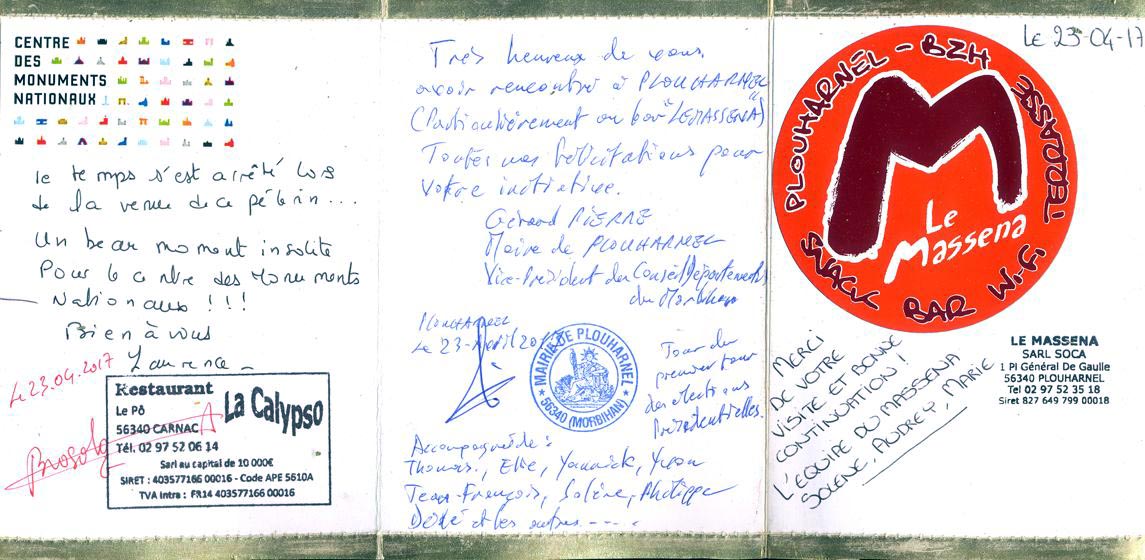 CENTRE
DES
MONUMENTS
NATIONAUX
le temps s'est arrêté lors
de la venue de ce pélerin...
Un beau moment insolite
Pour le centre des Monuments
Nationaux !!!
Bien à vous
Laurence
Le 23.04.2017
Restaurant
La Calypso
Le Pô
56340 CARNAC
Tél. 02 97 52 06 14
Sarl au capital de 10 000€
SIRET : 403577166 00016 - Code APE 5610A
TVA intra : FR14 403577166 00016
Très heureux de vous
avoir rencontré à PLOUHARNEL
(Particulièrement au bar "LE MASSENA")
Toutes mes félicitations pour
votre initiative.
Gérard PIERRE
Maire de PLOUHARNEL
Vice-Président du Conseil Départemental
du Morbihan
PLOUHARNEL
Le 23 Avril
MAIRIE DE PLOUHARNEL
56340 (MORBIHAN)
Jour du
premier tour
des élections
Présidentielles.
Accompagné de :
Thomas, Elie, Yannick, Yvon
Jean-François, Solène, Philippe
Dédé et les autres....
Le 23-04-17
PLOUHARNEL - BZH
M
Le
Massena
SNACK BAR W.F.
MERCI
DE VOTRE
VISITE ET BONNE
CONTINUATION !
L'EQUIPE DU MASSENA
SOLENE, AUDREY, MARIE
LE MASSENA
SARL SOCA
1 Pl Général De Gaulle
56340 PLOUHARNEL
Tel 02 97 52 35 18
Siret 827 649 799 00018